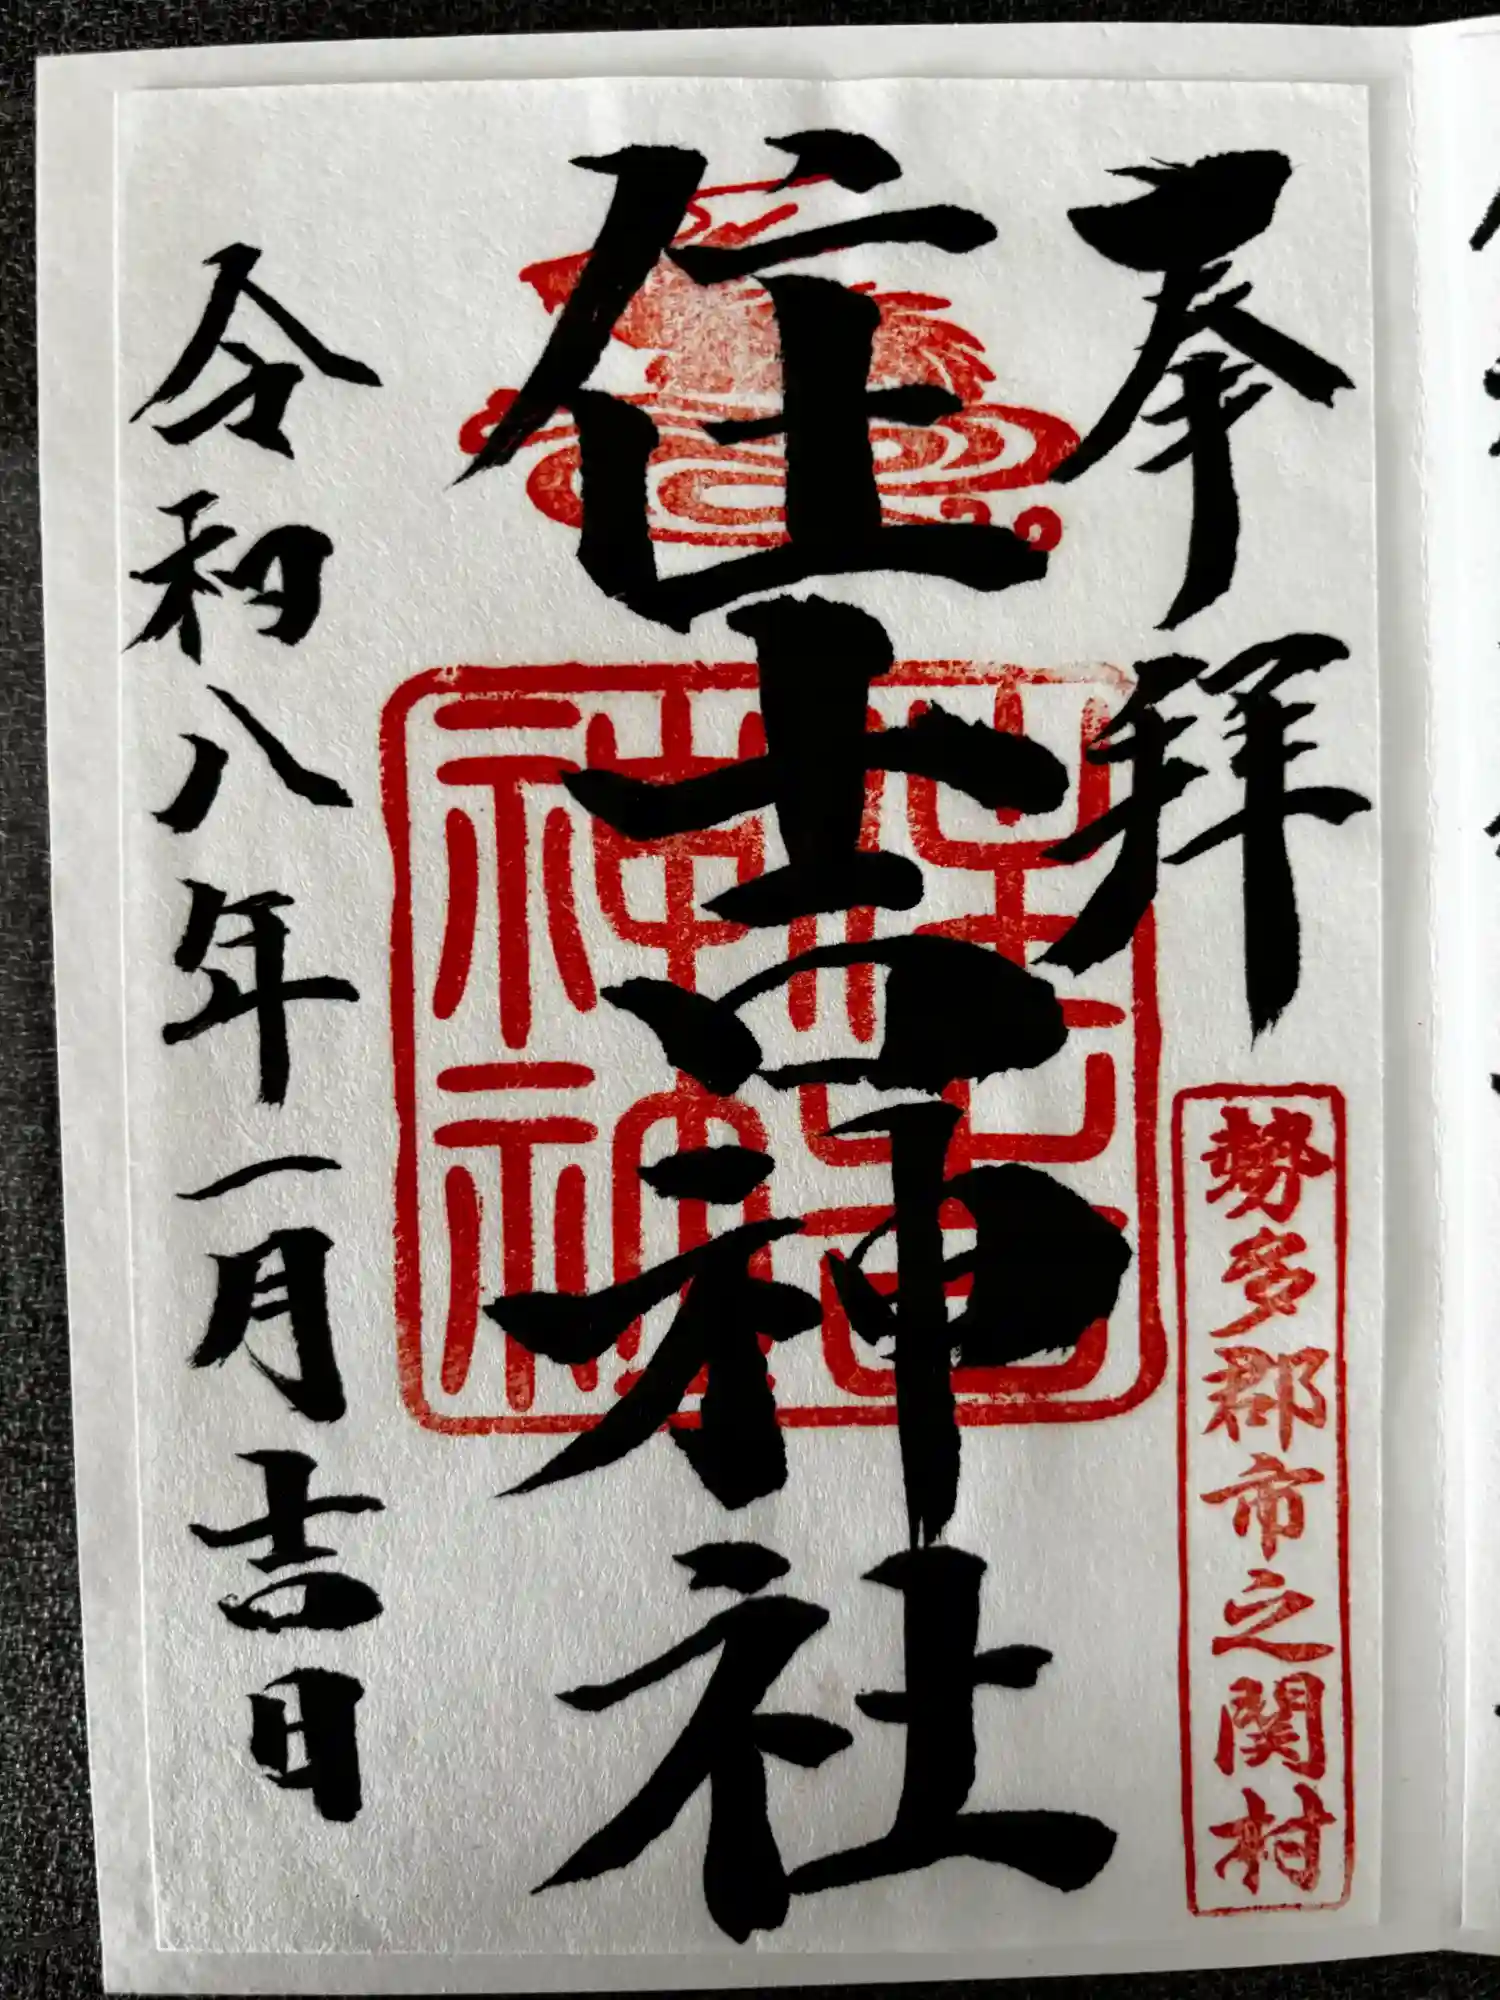 奉拝
勢多郡市之関村
住吉神社
住吉神社神
令和八年一月吉日